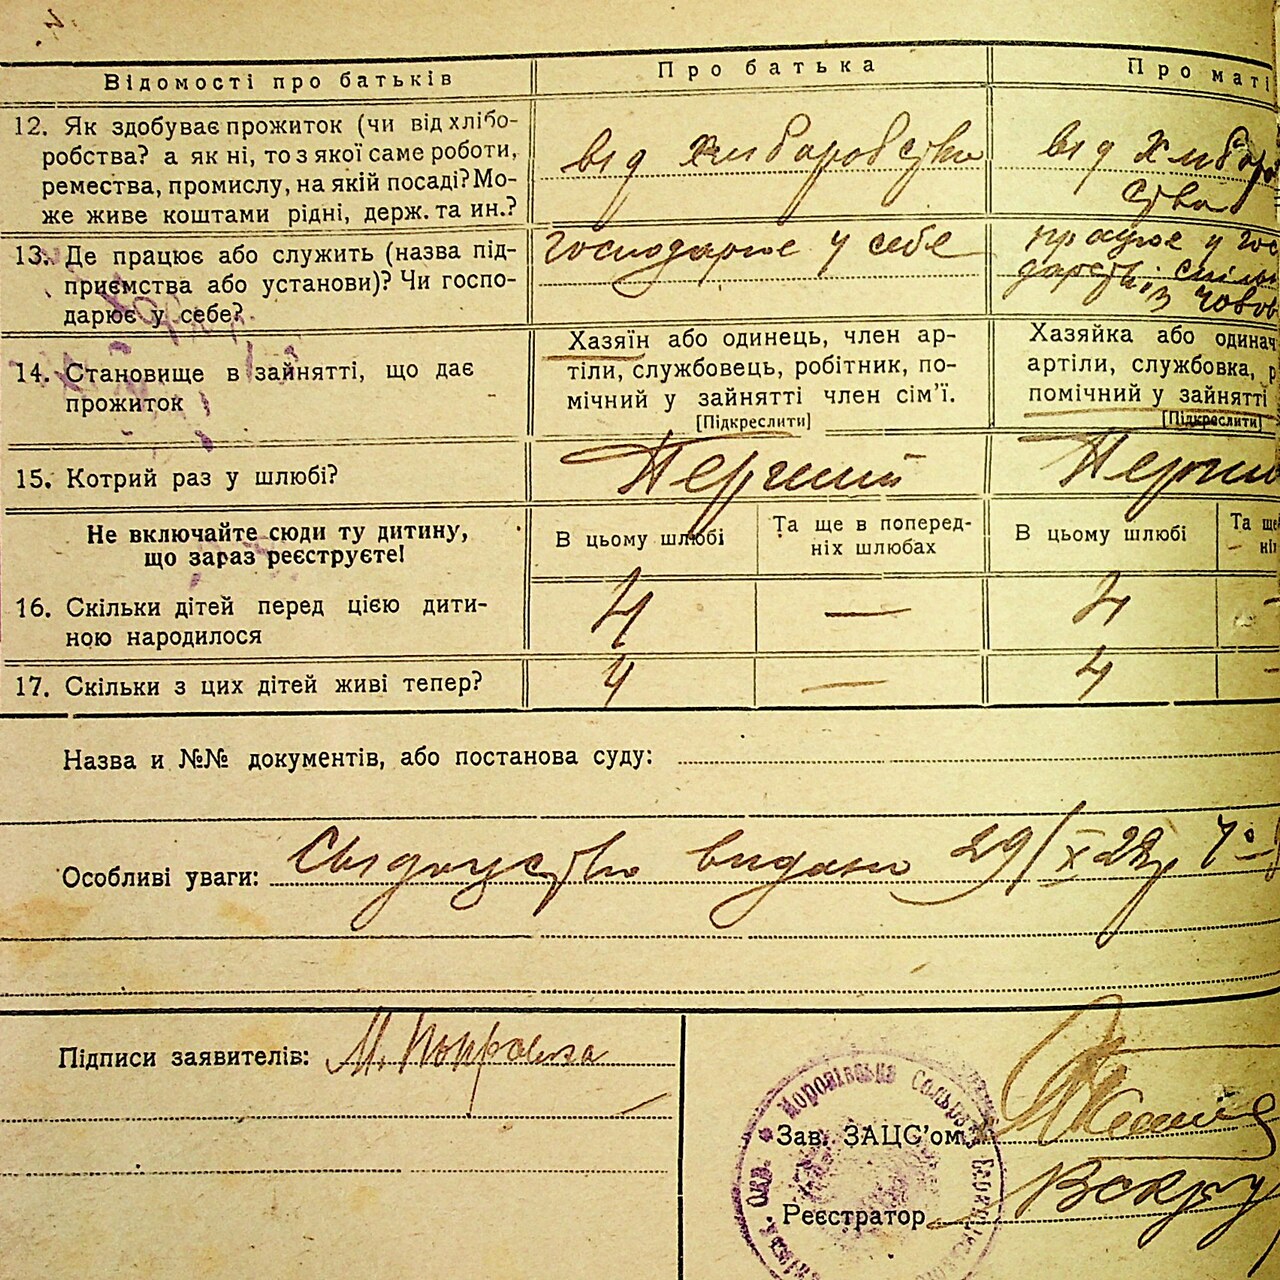 Відомості про батьків
Про батька
Про маті
12. Як здобуває прожиток (чи від хлібо-
робства? а як ні, то з якої саме роботи,
ремества, промислу, на якій посаді? Мо-
же живе коштами рідні, держ. та ин.?
від хліборобства
від хлібор
ства
13. Де працює або служить (назва під-
приємства або установи)? Чи госпо-
дарює у себе?
господарює у себе
працює у гос
дарстві спільно
із чолов
14. Становище в зайнятті, що дає
прожиток
Хазяїн або одинець, член ар-
тіли, службовець, робітник, по-
мічний у зайнятті член сім'ї.
[Підкреслити]
Хазяйка або одинач
артіли, службовка, р
помічний у зайнятті
[Підкреслити]
15. Котрий раз у шлюбі?
Перший
Перши
Не включайте сюди ту дитину,
що зараз реєструєте!
В цьому шлюбі
Та ще в поперед-
ніх шлюбах
В цьому шлюбі
Та ще
ніх
16. Скільки дітей перед цією дити-
ною народилося
4
—
4
—
17. Скільки з цих дітей живі тепер?
4
—
4
—
Назва и №№ документів, або постанова суду:
Особливі уваги: Свідоцтво видано 29/X 28р
Підписи заявителів: М.
Зав. ЗАЦС'ом
Реєстратор